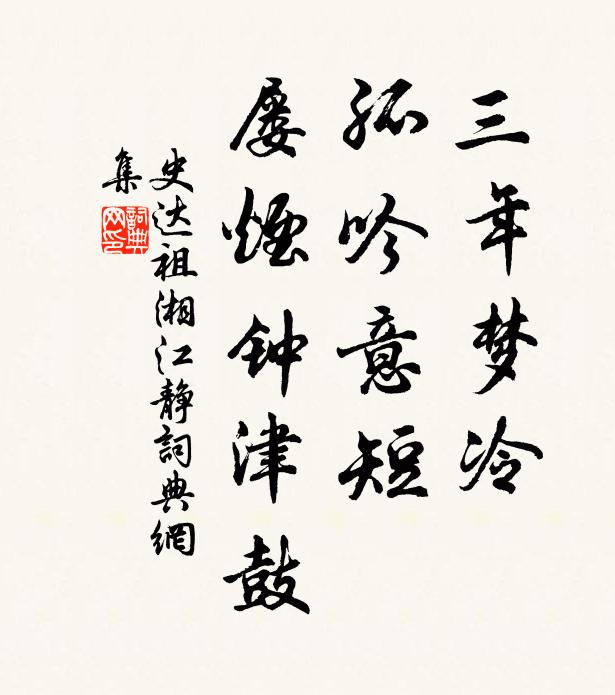 三年梦冷
孤吟意短
屡烟钟津鼓
史达祖湘江静詞典網
集
詞典
网印